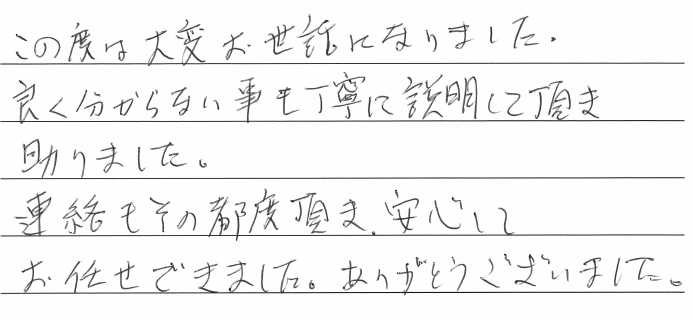 この度は大変お世話になりました.
良く分からない事も丁寧に説明して頂き
助りました。
連絡もその都度頂き、安心して
お任せできました。ありがとうございました。